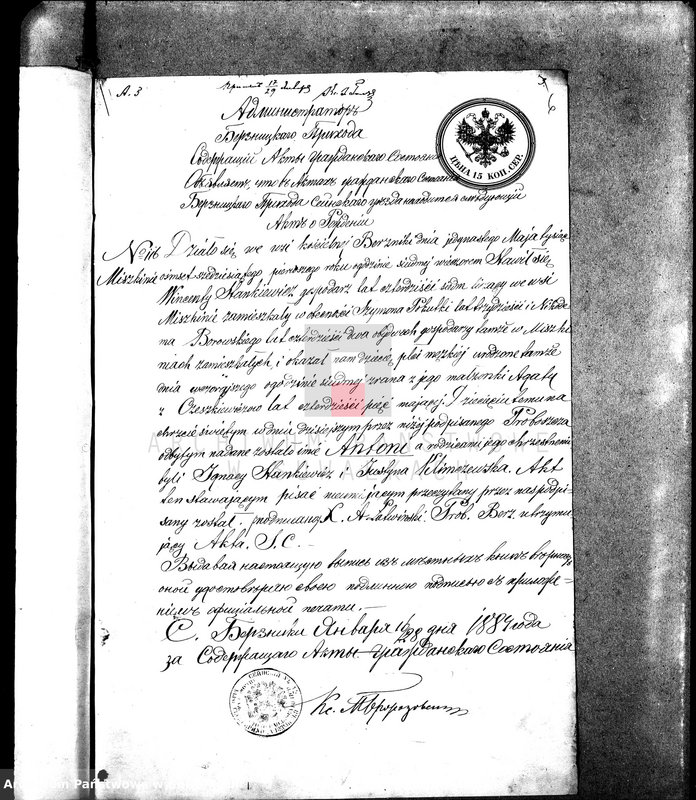 А. 3
17/29 Января
Администраторъ
Березницкаго Прихода
Содержащій Акты Гражданскаго Состоянія
Объявляетъ, что въ Актахъ гражданскаго Состоянія
Березницкаго Прихода Сейнскаго уѣзда находится слѣдующій
Актъ о Рожденіи
ЦѢНА 15 КОП. СЕР.
№ 116 Działo się we wsi kościelnej Berzniki dnia jedynastego Maja tysiąc
Miszkinie ośmset sześćdziesiątego pierwszego roku o godzinie siódmej wieczorem Stawił się
Wincenty Stankiewicz gospodarz lat czterdzieści siedm liczący we wsi
Miszkinie zamieszkały w obecności Szymona Pokutki lat trzydzieści i Nikode
ma Borowskiego lat czterdzieści dwa obydwóch gospodarzy tamże we Miszki
niach zamieszkałych i okazał nam dziecię płci męzkiej urodzone tamże
dnia wczorajszego o godzinie siódmej zrana z jego małżonki Agaty
z Czeszkiewiczów lat czterdzieści pięć mającej. Dziecięciu temu na
chrzcie świętym w dniu dzisiejszym przez niżej podpisanego Proboszcza
odbytym nadane zostało imie Antoni a rodzicami jego chrzestnemi
byli Ignacy Stankiewicz i Justyna Klimczewska. Akt
ten stawającym pisać nieumiejącym przeczytany przez nas podpi
sany został. podpisano X. A. Prob. Berz. utrzymu
jący Akta. S. C. —
Выдавая настоящую выпись изъ мѣстныхъ книгъ
оной удостовѣряю своею подлинною подписью съ приложе=
ніемъ официальной печати. —
С. Березники Января 16/28 дня 1884 года
за Содержащаго Акты Гражданскаго Состоянія
Кс.